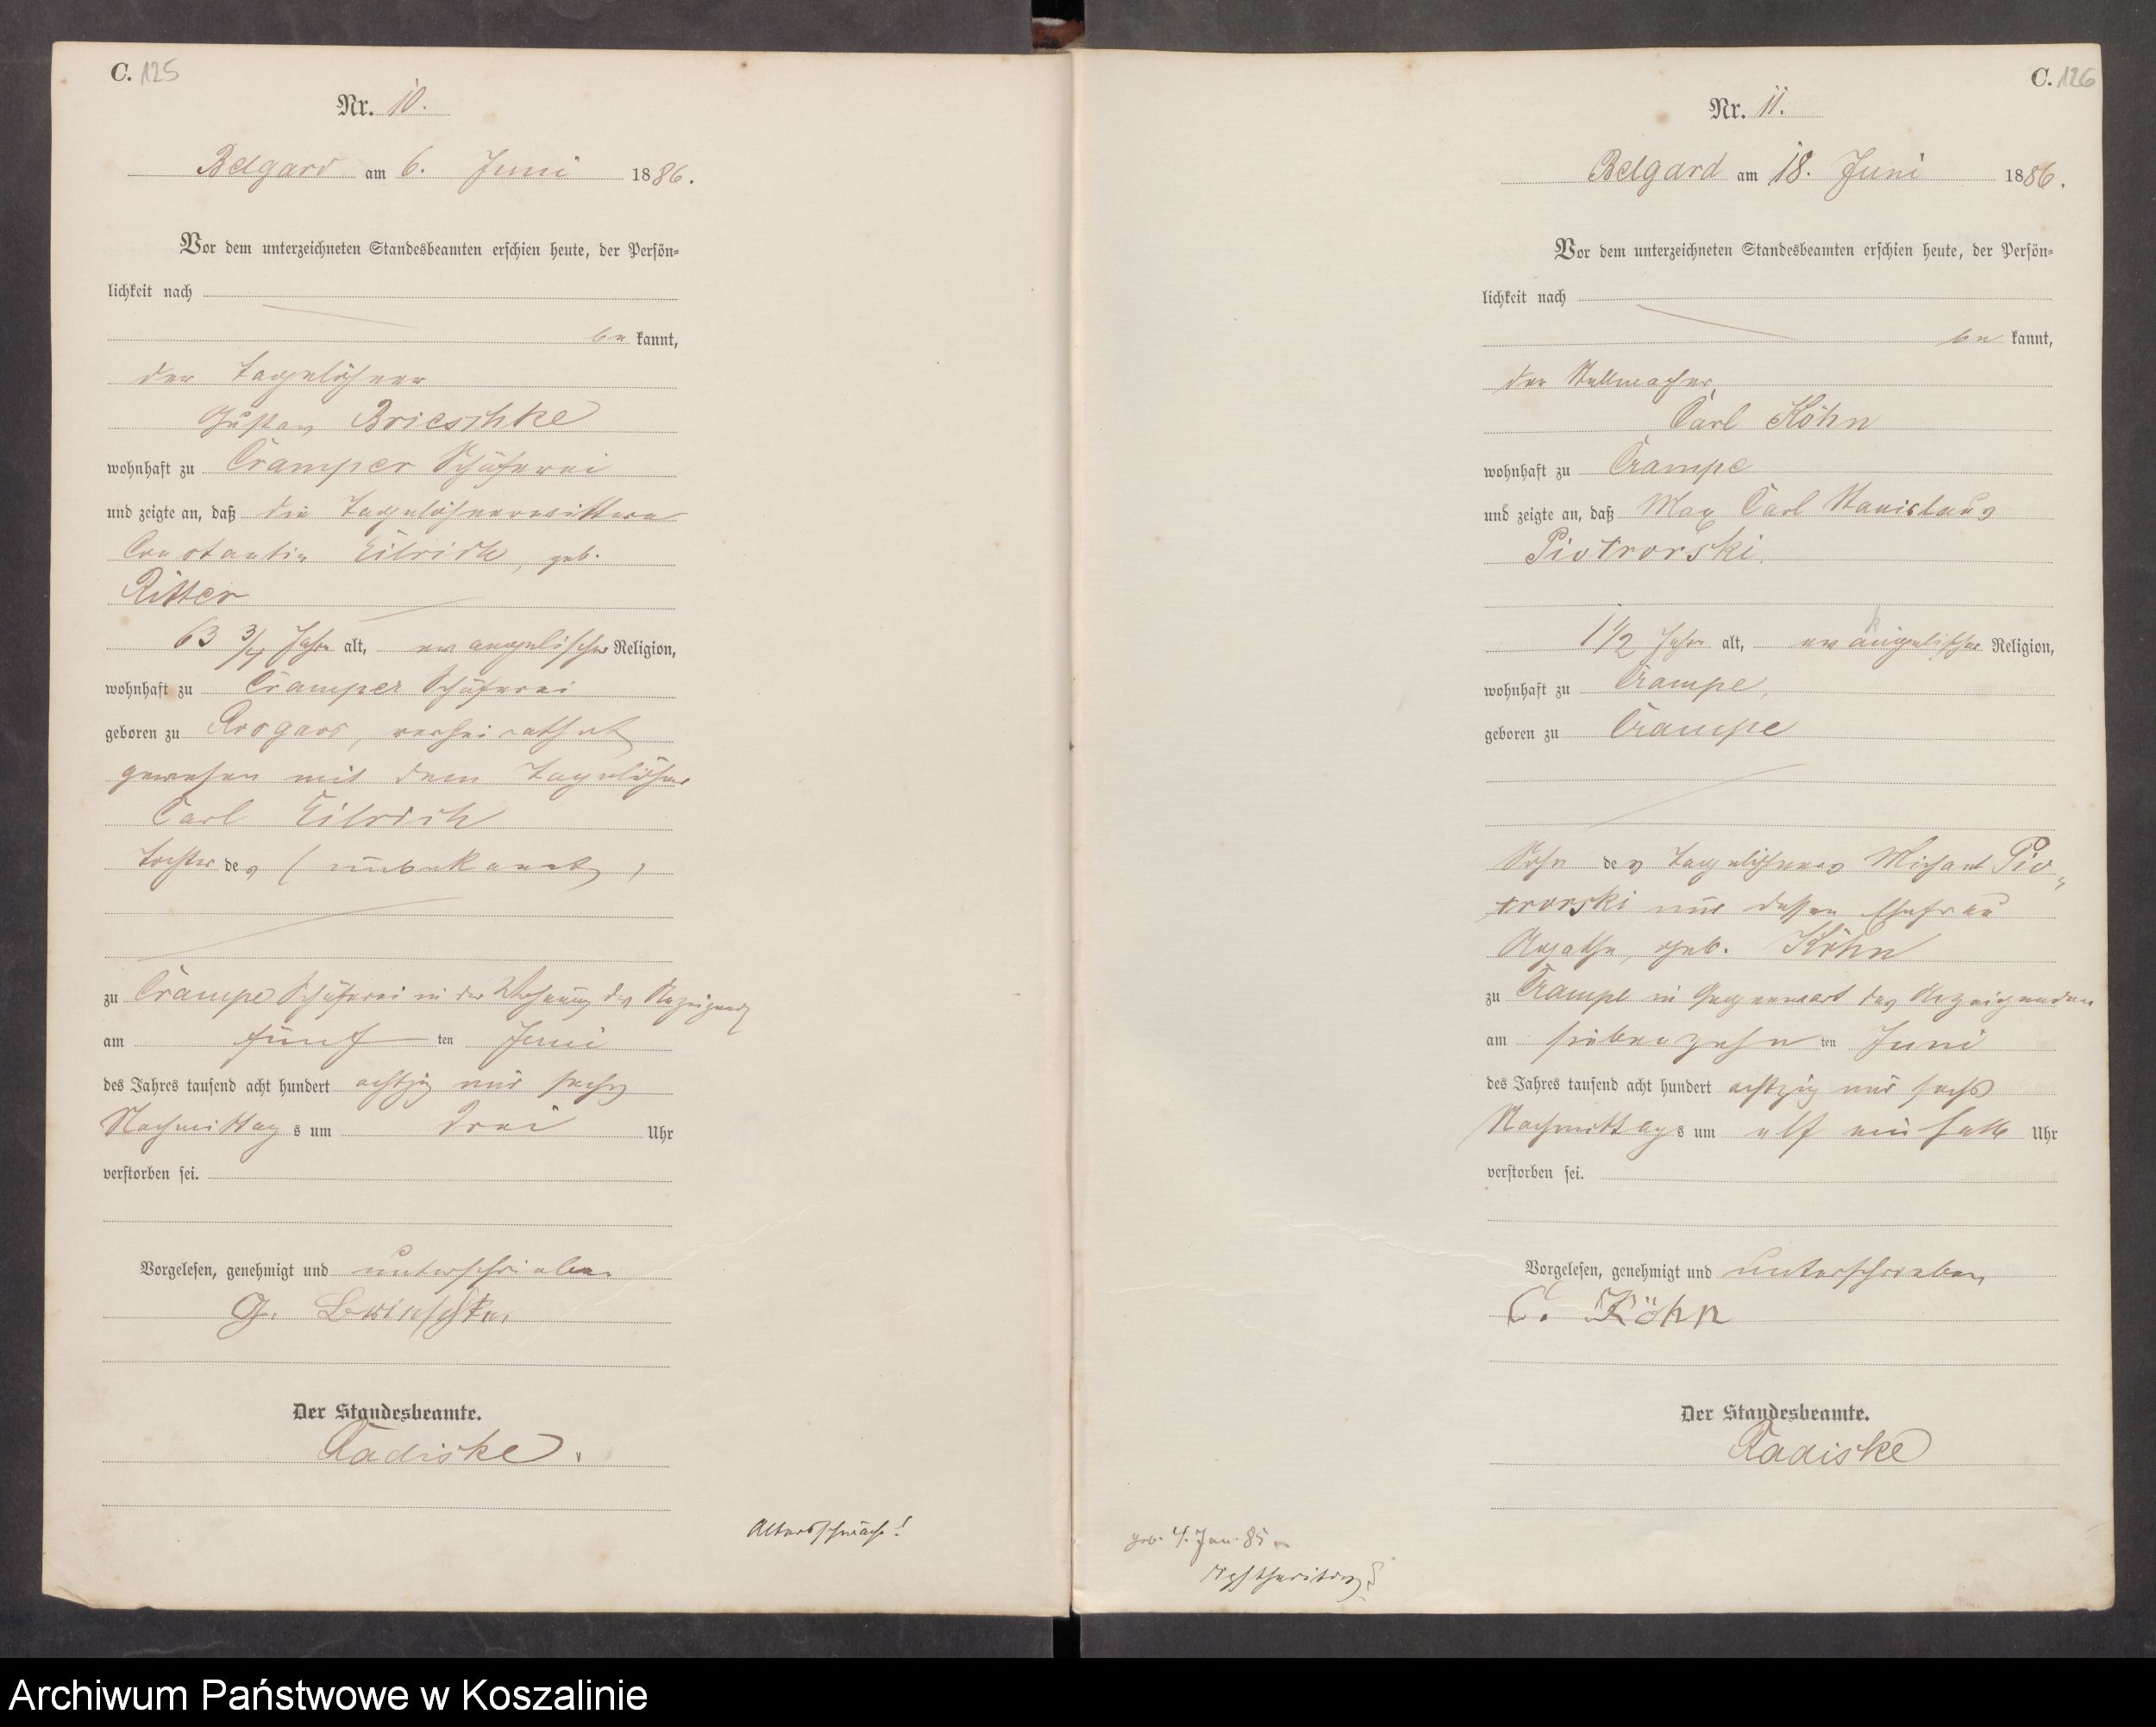 C. 125
Nr. 10.
Belgard am 6. Juni 1886.
Vor dem unterzeichneten Standesbeamten erschien heute, der Persön=
lichkeit nach
be kannt,
der Tagelöhner
Gustav Brieschke
wohnhaft zu Cramper Schäferei
und zeigte an, daß die Tagelöhnerwittwe
Constantin Eilrich, geb.
Ritter
63 3/4 Jahre alt, evangelischer Religion,
wohnhaft zu Cramper Schäferei
geboren zu verheirathet
gewesen mit dem Tagelöhner
Carl Eilrich
Tochter des (unbekannt)
zu Crampe Schäferei in der Wohnung des Anzeigenden
am fünf ten Juni
des Jahres tausend acht hundert achtzig und sechs
Nachmittag s um drei Uhr
verstorben sei.
Vorgelesen, genehmigt und unterschrieben
G.
Der Standesbeamte.
Radiske.
Altersschwäche!
C. 126
Nr. 11.
Belgard am 18. Juni 1886.
Vor dem unterzeichneten Standesbeamten erschien heute, der Persön=
lichkeit nach
be kannt,
der Stellmacher
Carl Köhn
wohnhaft zu Crampe
und zeigte an, daß Max Carl Stanislaus
Piotrorski,
1 1/2 Jahr alt, evangelischer Religion,
k
wohnhaft zu Crampe,
geboren zu Crampe
Sohn des Tagelöhners Michael Pio„
trorski und dessen Ehefrau
Agathe, geb. Köhn
zu Crampe in Gegenwart des Anzeigenden
am siebenzehn ten Juni
des Jahres tausend acht hundert achtzig und sechs
Nachmittags s um elf ein halb Uhr
verstorben sei.
Vorgelesen, genehmigt und unterschrieben
C. Köhn
Der Standesbeamte.
Radiske
geb. 4. Jan. 85
Archiwum Państwowe w Koszalinie